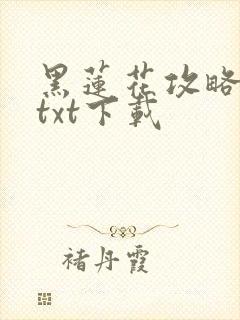 黑蓮花攻略
txt下載
褚丹霞